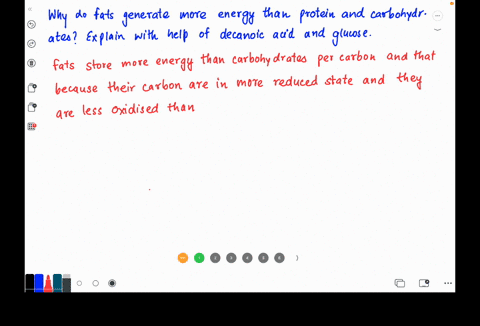 Why do fats generate more energy than protein and carbohydr-
ates? Explain with help of decanoic acid and glucose.
fats store more energy than carbohydrates per carbon and that
because their carbon are in more reduced state and they
are less oxidised than